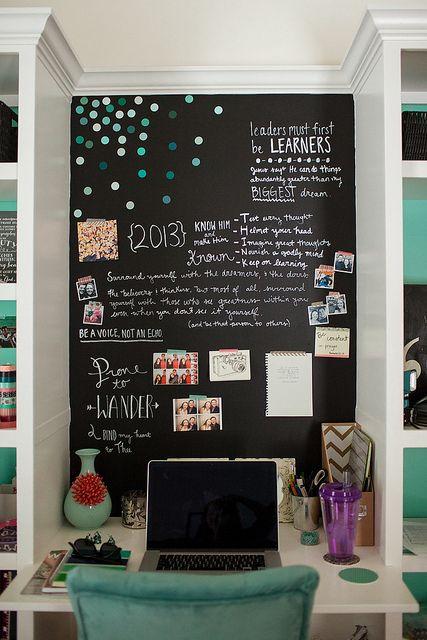 leaders must first
be LEARNERS
Jesus says He can do things
abundantly greater than my
BIGGEST dream.
{2013}
KNOW HIM
and
make Him
Known
- Test every thought
- Helmet your head
- Imagine great thoughts
- Nourish a godly mind
- Keep on learning
Surround yourself with the dreamers, & the doers,
the believers & thinkers, but most of all, surround
yourself with those who see greatness within you
even when you don't see it yourself.
(and be that person to others)
BE A VOICE, NOT AN ECHO.
Be
constant
in
prayer
Prone
to
WANDER
& BIND my heart
to Thee